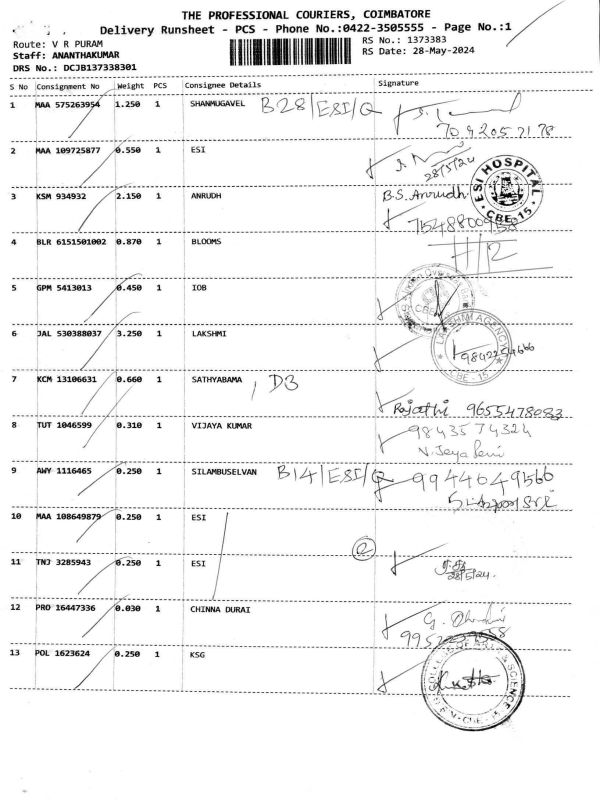 THE PROFESSIONAL COURIERS, COIMBATORE
Delivery Runsheet - PCS - Phone No.:0422-3505555 - Page No.:1
Route: V R PURAM
RS No.: 1373383
Staff: ANANTHAKUMAR
RS Date: 28-May-2024
DRS No.: DCJB137338301
S No Consignment No Weight PCS Consignee Details Signature
1 MAA 575263954 1.250 1 SHANMUGAVEL B28/ESI/Q
2 MAA 109725877 0.550 1 ESI
28/5/24
ESI HOSPITAL
CBE-15
3 KSM 934932 2.150 1 ANRUDH B.S. Anrudh
4 BLR 6151501002 0.870 1 BLOOMS
5 GPM 5413013 0.450 1 IOB
6 JAL 530388037 3.250 1 LAKSHMI
LAKSHMI AGENCY
CBE - 15
7 KCM 13106631 0.660 1 SATHYABAMA , D3
Rajathi 9655478083
8 TUT 1046599 0.310 1 VIJAYA KUMAR 9843574324
9 AWY 1116465 0.250 1 SILAMBUSELVAN B14/ESI/Q 9944649566
10 MAA 108649879 0.250 1 ESI
2
11 TNJ 3285943 0.250 1 ESI
28/5/24.
12 PRO 16447336 0.030 1 CHINNA DURAI
13 POL 1623624 0.250 1 KSG